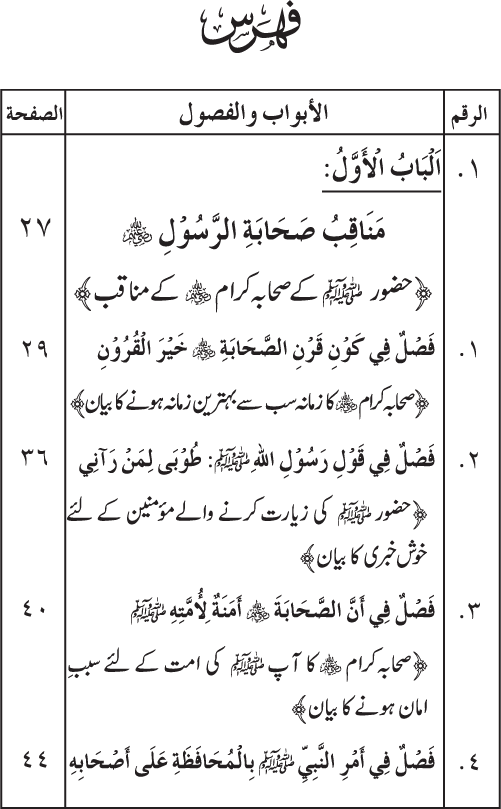 فهرس
الرقم الأبواب والفصول الصفحة
١. اَلْبَابُ الْأَوَّلُ:
مَنَاقِبُ صَحَابَةِ الرَّسُوْلِ ﷺ ٢٧
﴿حضور ﷺ کے صحابہ کرام ؓ کے مناقب﴾
١. فَصْلٌ فِي كَوْنِ قَرْنِ الصَّحَابَةِ ؓ خَيْرَ الْقُرُوْنِ ٢٩
﴿صحابہ کرام ؓ کا زمانہ سب سے بہترین زمانہ ہونے کا بیان﴾
٢. فَصْلٌ فِي قَوْلِ رَسُوْلِ اللهِ ﷺ: طُوْبَى لِمَنْ رَآنِي ٣٦
﴿حضور ﷺ کی زیارت کرنے والے مؤمنین کے لئے
خوش خبری کا بیان﴾
٣. فَصْلٌ فِي أَنَّ الصَّحَابَةَ ؓ أَمَنَةٌ لِأُمَّتِهِ ﷺ ٤٠
﴿صحابہ کرام ؓ کا آپ ﷺ کی امت کے لئے سببِ
امان ہونے کا بیان﴾
٤. فَصْلٌ فِي أَمْرِ النَّبِيِّ ﷺ بِالْمُحَافَظَةِ عَلَى أَصْحَابِهِ ٤٤